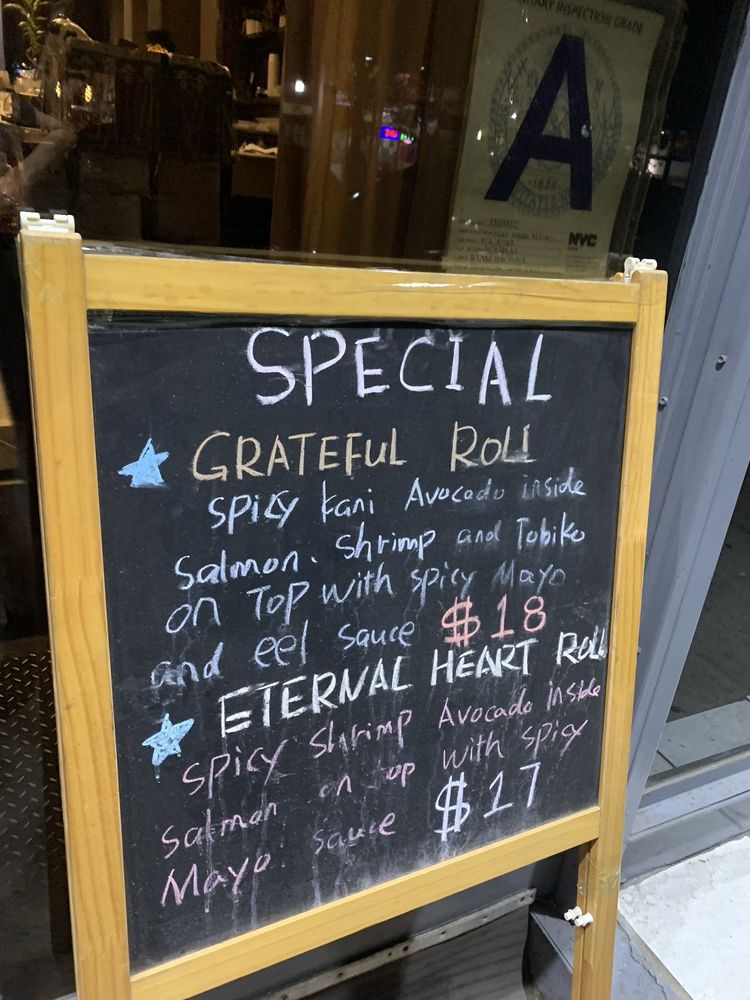 SANITARY INSPECTION GRADE
A
NYC
SPECIAL
GRATEFUL ROLL
spicy kani Avocado inside
salmon. shrimp and Tobiko
on Top with spicy Mayo
and eel sauce $18
ETERNAL HEART ROLL
spicy shrimp Avocado inside
salmon on top with spicy
Mayo sauce $17